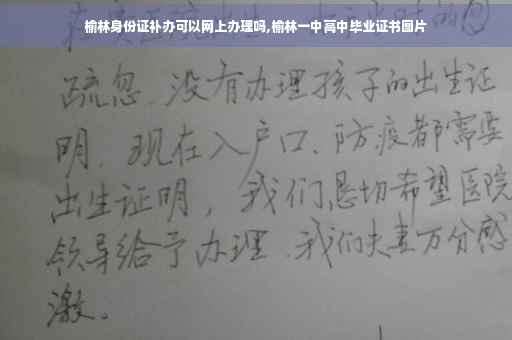 榆林身份证补办可以网上办理吗,榆林一中高中毕业证书图片
疏忽、没有办理孩子的出生证
明、现在入户口、防疫都需要
出生证明，我们恳切希望医院
领导给予办理、我们夫妻万分感
激。